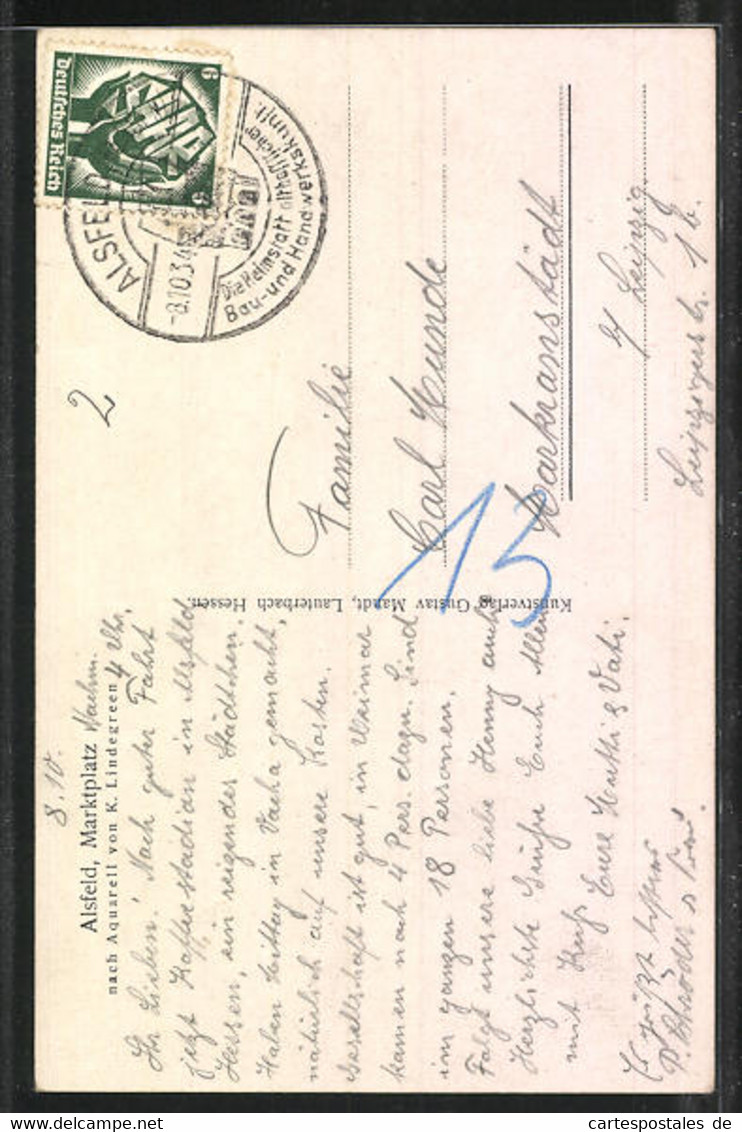 8.10.
Alsfeld, Marktplatz Nachm.
nach Aquarell von K. Lindegreen 4 Uhr.
Ihr Lieben! Nach guter Fahrt
jetzt Kaffeestation in Alsfeld
Hessen, ein reizendes Städtchen.
Haben Mittag in Vacha gemacht,
natürlich auf unsere Kosten.
Gesellschaft ist gut, in Weimar
kamen noch 4 Pers. dazu. Sind
im ganzen 18 Personen.
Folgt unsere liebe Henny auch
Herzlichste Grüße Euch Allen
mit Kuß Eure Mutti & Vati.
Es grüßt
P. Schröder u. Frau.
Kunstverlag Gustav Mandt, Lauterbach Hessen.
Deutsches Reich
6 6
ALSFELD
-8.10.34
Die Heimstatt althessischer
Bau- und Handwerkskunst
2
Familie
Carl Kunde
Markranstädt
b/ Leipzig
Leipzigerstr. 1b.
13
cartespostales de